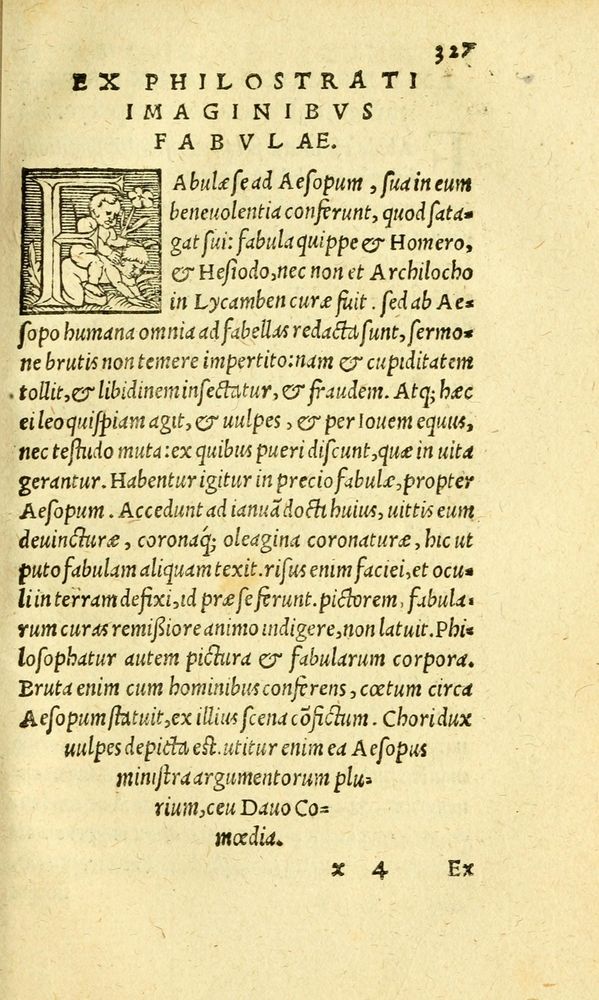 327
EX PHILOSTRATI
IMAGINIBVS
FABVLAE.
FAbulæ se ad Aesopum, sua in eum
beneuolentia conferunt, quod sata-
gat sui: fabula quippe & Homero,
& Hesiodo, nec non et Archilocho
in Lycamben curæ fuit. sed ab Ae-
sopo humana omnia ad fabellas redacta sunt, sermo-
ne brutis non temere impertito: nam & cupiditatem
tollit, & libidinem insectatur, & fraudem. Atq; hæc
ei leo quispiam agit, & uulpes, & per Iouem equus,
nec testudo muta: ex quibus pueri discunt, quæ in uita
gerantur. Habentur igitur in precio fabulæ, propter
Aesopum. Accedunt ad ianuã docti huius, uittis eum
deuincturæ, coronaq́; oleagina coronaturæ, hic ut
puto fabulam aliquam texit. risus enim faciei, et ocu-
li in terram defixi, id præ se ferunt. pictorem, fabula-
rum curas remißiore animo indigere, non latuit. Phi-
losophatur autem pictura & fabularum corpora.
Bruta enim cum hominibus conferens, cœtum circa
Aesopum statuit, ex illius scena cõfictum. Chori dux
uulpes depicta est. utitur enim ea Aesopus
ministra argumentorum plu-
rium, ceu Dauo Co-
mœdia.
x 4 Ex